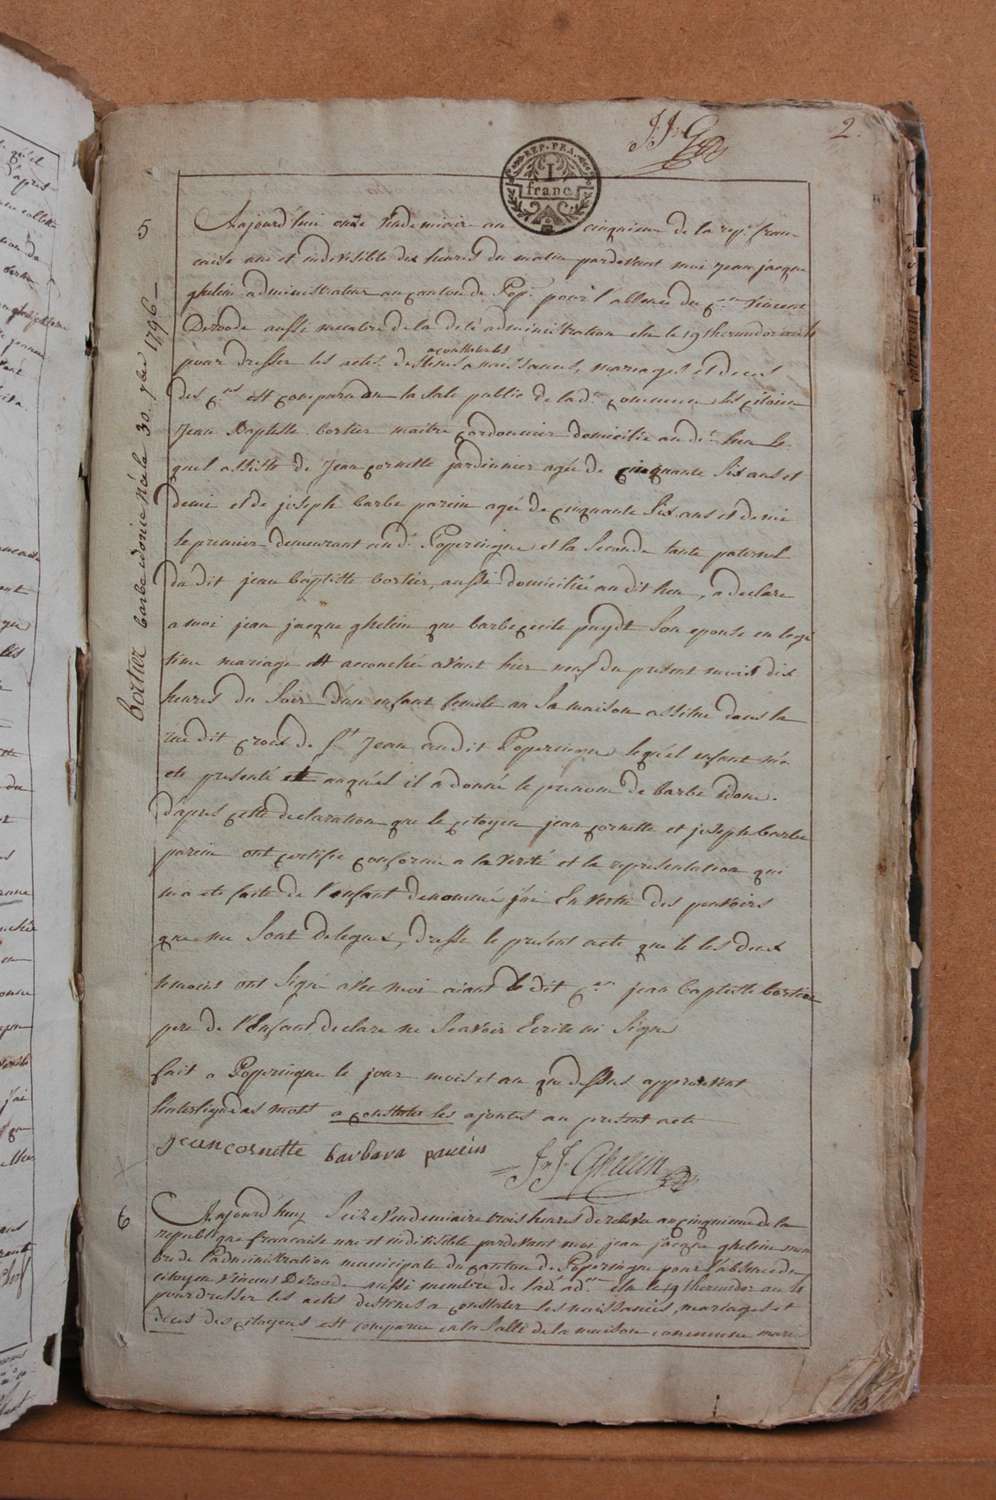 J. J. G
2.
REP. FRA.
1
franc
5
bortier barbe idonie née le 30 7bre 1796
Aujourd'hui onze vendemiair an cinquieme de la rep.e fran
caise une et indivisible dix heures du matin pardevant moi jean jacque
ghelein administrateur au canton de Pop. pour l'absence du c.en vincent
Derode aussi membre de la dite administration elu le 19 thermidor an 4
pour dresser les actes destines a constater les naissances, mariages et deces
des c.ens est comparu en la sale public de la d. commune le citoien
Jean Baptiste bortier maitre cordonnier domicilie au d. lieu le
quel assisté de Jean cornette jardinnier agée de cinquante six ans et
demie et de joseph barbe parein agé de cinquante six ans et demie
le premier demeurant au d. Poperingue et la seconde tante paternel
du dit jean baptiste bortier, aussi domiciliée au dit lieu, a declare
a moi jean jacque ghelein que barbe cecile puydt son epouse en legi
time mariage est accouchée avant hier neuf du present mois dix
heures du soir d'un enfant femele en sa maison assise dans la
rue dit croix de St Jean audit Poperingue lequel enfant m'a
ete presenté et auquel il a donné le prenom de barbe idonie.
d'apres cette declaration que le citoyen jean cornette et joseph barbe
parein ont certifie conforme a la verité et la representation qui
m'a ete faite de l'enfant denommé j'ai en vertu des pouvoirs
que me sont delegues, dresse le present acte que le les deux
temoins ont signé avec moi aiant le dit c.en jean baptiste bortier
pere de l'enfant declare ne scavoir ecrire ni signe
fait a Poperingue le jour mois et an que dessus approuvant
l'interligne des mots a constater les ajoutés au present acte
jean cornette barbara parein
J. J. Ghelein
6
Aujourd'huy seize vendemiaire trois heures de relevée an cinquieme de la
republique francaise une et indivisible pardevant moi jean jacque ghelein mem
bre de l'administration municipale du canton de Poperingue pour l'absence du
citoyen vincent Derode aussi membre de lad. ad.on elu le 19 thermidor an 4
pour dresser les actes destinés a constater les naissances, mariages et
deces des citoyens est comparu en la salle de la maison commune marie